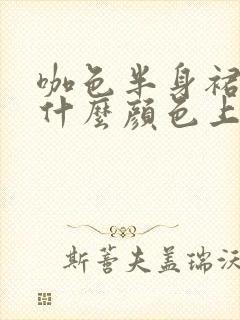 咖色半身裙
什麼顏色上
斯蓍夫盖瑞沃